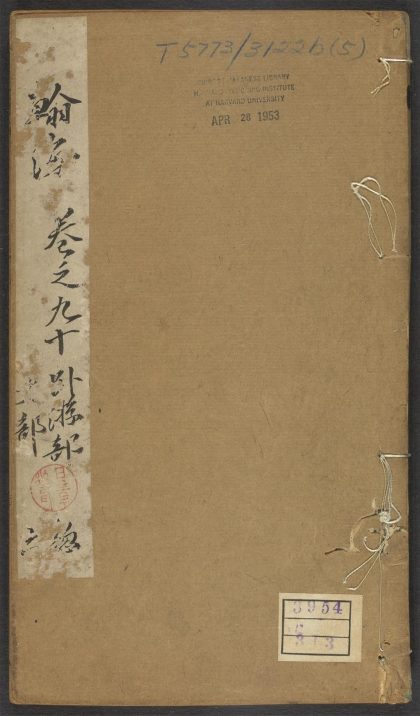 T5773/3122b(5)
CHINESE-JAPANESE LIBRARY
HARVARD-YENCHING INSTITUTE
AT HARVARD UNIVERSITY
APR 28 1953
瀚海
卷之九十
臥游部
部
3954
313